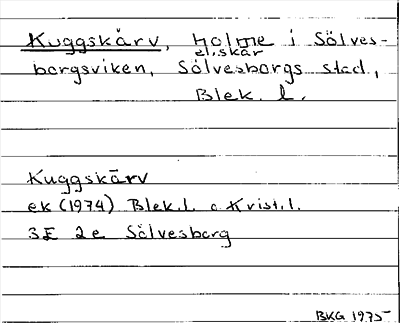 Kuggskärv, holme i Sölves-
el. skär
borgsviken, Sölvesborgs stad,
Blek. l.
Kuggskärv
ek (1974) Blek. l. o Krist. l.
3E 2e Sölvesborg
BKG 1975